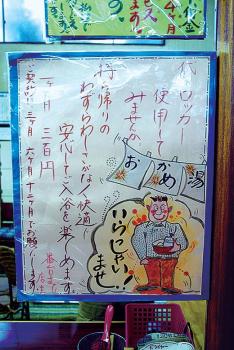 ヶ月
ビス
ます。
貸ロッカー
使用して
みませんか
持ち帰りの
わずらわしさがなく快適!
安心して入浴を楽しめます。
一ヶ月 三百円
三ヶ月 六ヶ月 十二ヶ月でお願いします。
おかめ湯
いらっしゃい
ませ!